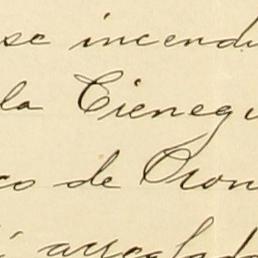 se incendi
la Cieneg
co de Oron
arreglad